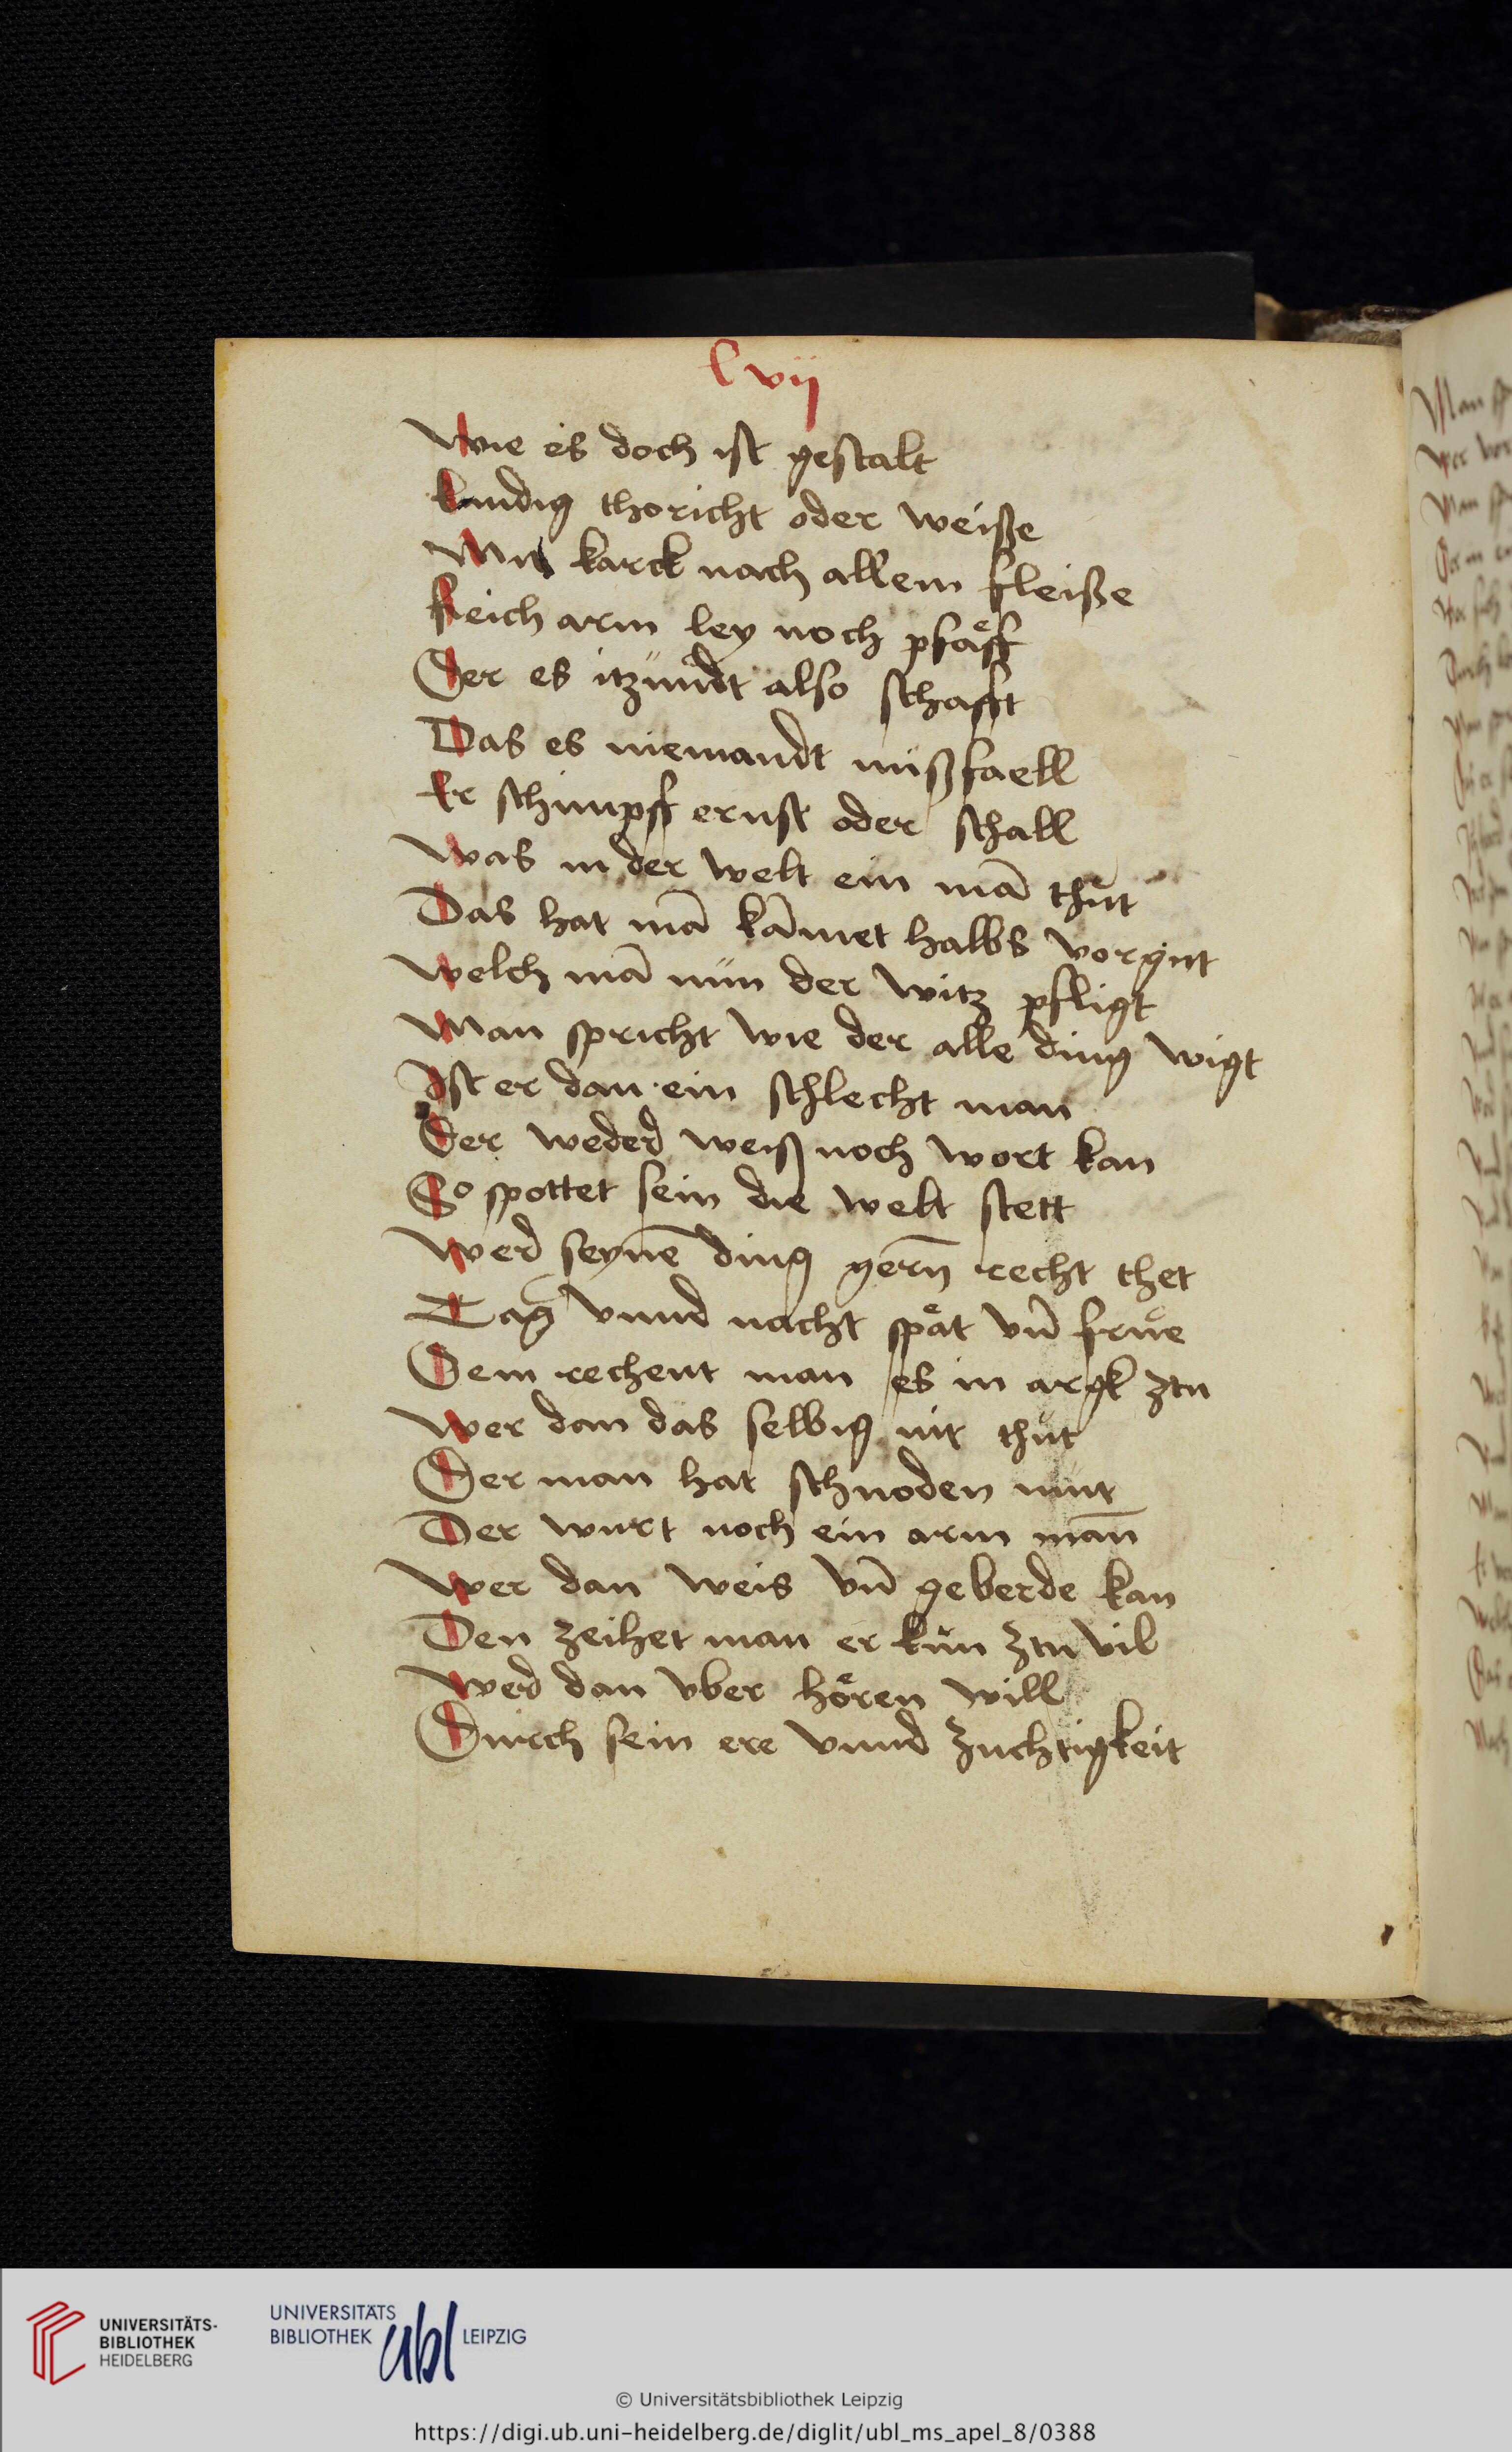 lvij
Wie es doch ist gestalt
kundig thoricht oder weiße
Milt karck nach allem fleiße
Reich arm ley noch pfaͤff
Der es itzundt also schafft
Das es niemandt mißfaell
Er schimpff ernst oder schall
Was in der welt ein mā thut
Das hat mā kāmet halbs vorgut
Welch mā nun der witz pfligt
Man spricht wie der alle ding wigt
Ist er dan ein schlecht man
Der weder weiß noch wort kan
So spottet sein die welt stett
Wer seynē ding gern̄ recht thet
Tag vnnd nacht spaͤt vn̄ frue
Dem rechent man es in argk ztu
Wer dan das selbig nit thut
Der man hat schnoden mut
Der wurt noch ein arm man̄
Wer dan weis vn̄ geberde kan
Den zeihet man er kun ztu vil
Wer dan vber hoͤren will
Durch sein ere vnnd zuchtigkeit
UNIVERSITÄTS-
BIBLIOTHEK
HEIDELBERG
UNIVERSITÄTS
BIBLIOTHEK
ubl
LEIPZIG
© Universitätsbibliothek Leipzig
https://digi.ub.uni-heidelberg.de/diglit/ubl_ms_apel_8/0388